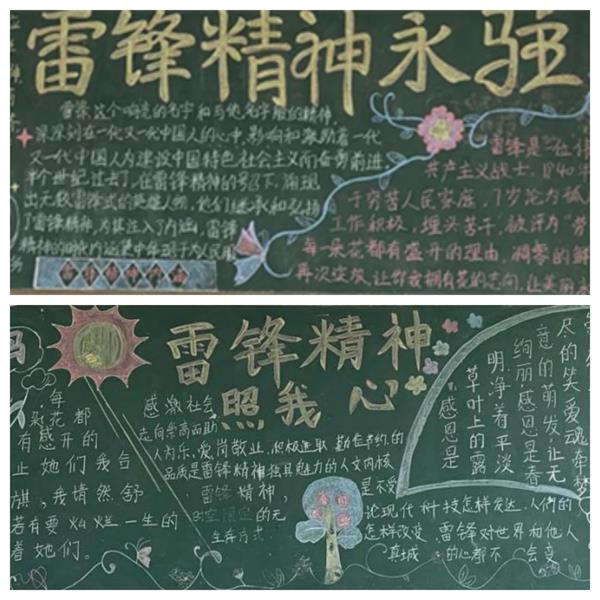 雷锋精神永驻
雷锋,这个响亮的名字和与他名字般的精神
深深刻在一代又一代中国人的心中,影响和激励着一代
又一代中国人为建设中国特色社会主义而奋勇前进
半个世纪过去了,在雷锋精神的号召下,涌现
出无数雷锋式的英雄人物,他们继承和弘扬
了雷锋精神,为其注入了内涵,雷锋
精神的时代内涵集中体现于为人民服
雷锋精神内涵
雷锋是一位伟
共产主义战士,1940年
于穷苦人民家庭,7岁沦为孤
工作积极,埋头苦干,被评为“劳
每一朵花都有盛开的理由,凋零的鲜
再次绽放,让你我拥有美的志向,让美丽
雷锋精神
照我心
每
彩花都
有感开的
止她们我含
旗,我情然舒
若有要灿烂一生的
着她们。
感激社会
志向崇高而助
人为乐、爱岗敬业、积极进取、勤俭节约的
品质是雷锋精神独具魅力的人文内核
雷锋精神,
时空限定的无
生存方式
是不受
论现代科技怎样发达,人们的
怎样改变,雷锋对世界和他人
真诚的心都不会变
尽的笑爱魂牵梦
意的萌发,让无
绚丽感恩是春
明净着平淡
草叶上的露
感恩是